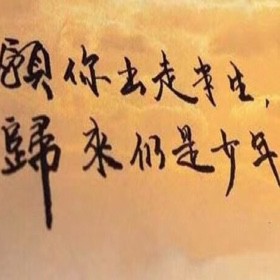 願你出走半生,
歸來仍是少年